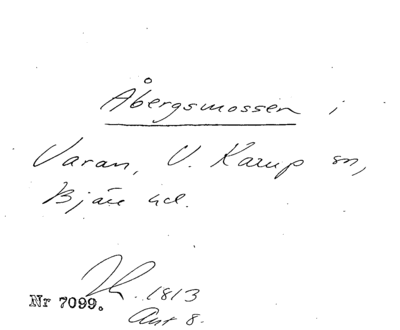 Åbergsmossen i
Varan, V. Karup sn,
Bjäre hd.
1813
Nr 7099.
Ant 8.